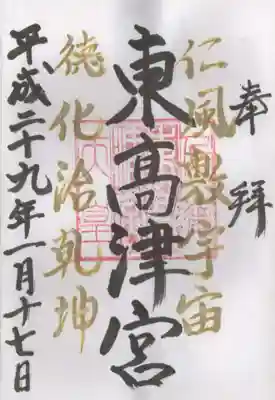 奉拝
仁風敷宇宙
東高津宮
徳化洽乾坤
平成二十九年一月十七日